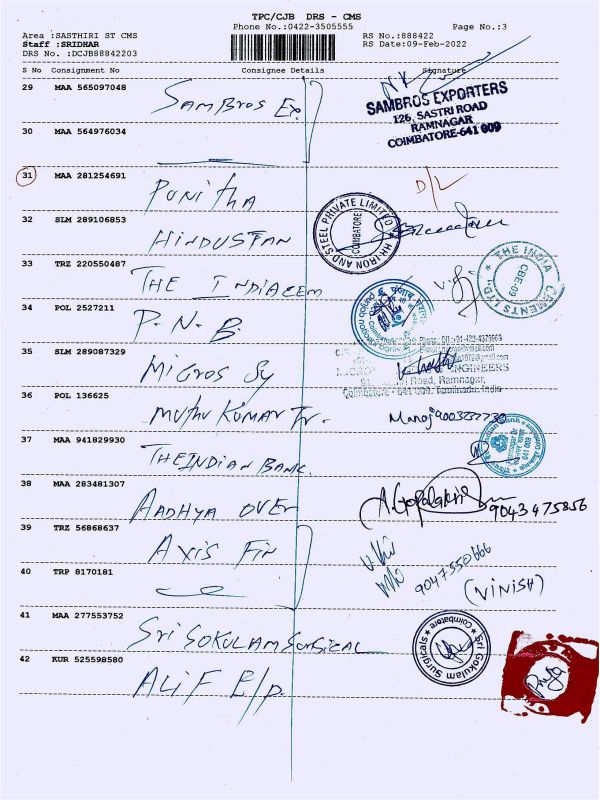 TPC/CJB DRS - CMS
Phone No.:0422-3505555
Page No.:3
Area :SASTHIRI ST CMS
RS No.:888422
Staff :SRIDHAR
RS Date:09-Feb-2022
DRS No. :DCJB88842203
S No Consignment No Consignee Details Signature
29 MAA 565097048 SAMBROS Ex.
SAMBROS EXPORTERS
126, SASTRI ROAD
RAMNAGAR
COIMBATORE-641 009
30 MAA 564976034
31 MAA 281254691 PUNITHA D/L
32 SLM 289106853 HINDUSTAN
HH IRON AND STEEL PRIVATE LIMITED
COIMBATORE
33 TRZ 220550487 THE INDIACEM
THE INDIA CEMENTS LTD.
CBE-09
34 POL 2527211 P.N.B.
35 SLM 289087329 MIGROS Sy
ENGINEERS
Road, Ramnagar,
Coimbatore - 641 009. Tamilnadu, India
36 POL 136625 MUTHU KUMAR Tr. Manoj
37 MAA 941829930 THE INDIAN BANK.
Indian Bank
641 009
38 MAA 283481307 AADHYA OVER
A.Gopalakris 9043475856
39 TRZ 56868637 AXIS FIN
40 TRP 8170181
9047550666
(VINISH)
41 MAA 277553752 Sri GOKULAM SURGICAL
Sri Gokulam Surgicals
Coimbatore
42 KUR 525598580 ALIF E/p.
Priya